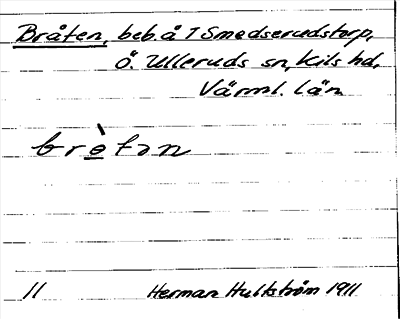 Bråten, beb. å 1 Smedserudstorp,
Ö. Ulleruds sn, Kils hd,
Värml. län
brè̱tən
11 Herman Hultström 1911